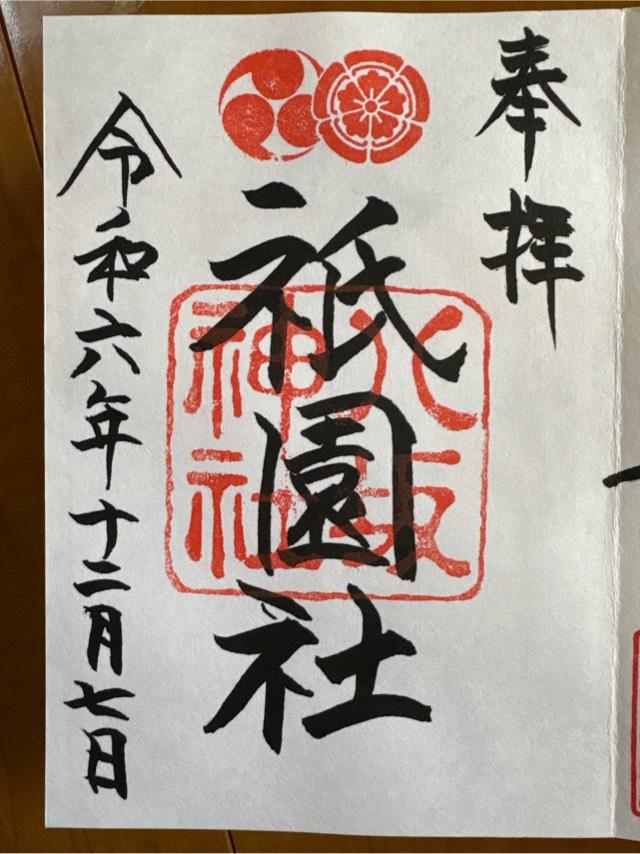 奉拝
祇園社
八坂
神社
令和六年十二月七日